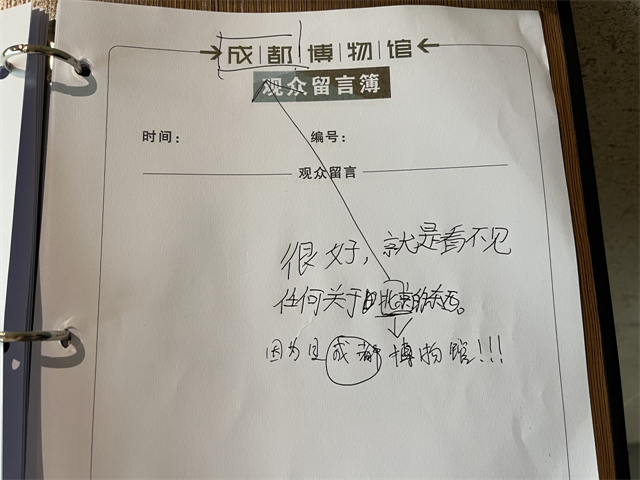 成都博物馆
观众留言簿
时间： 编号：
观众留言
很好，就是看不见
任何关于北京的东西。
因为是成都博物馆!!!